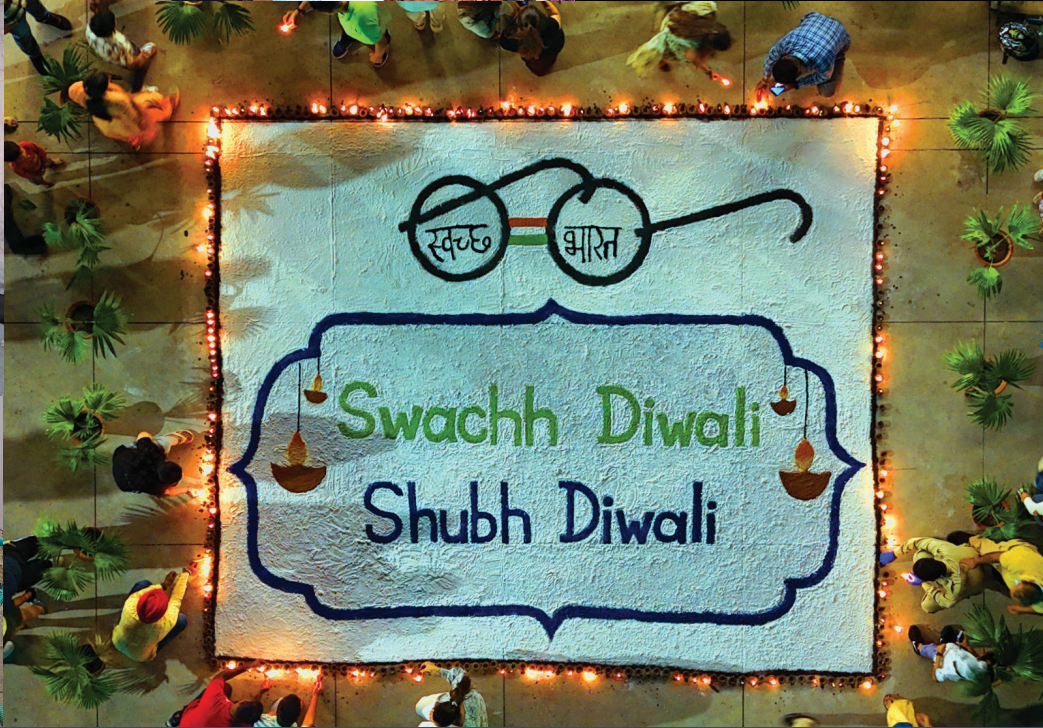 स्वच्छ भारत
Swachh Diwali
Shubh Diwali